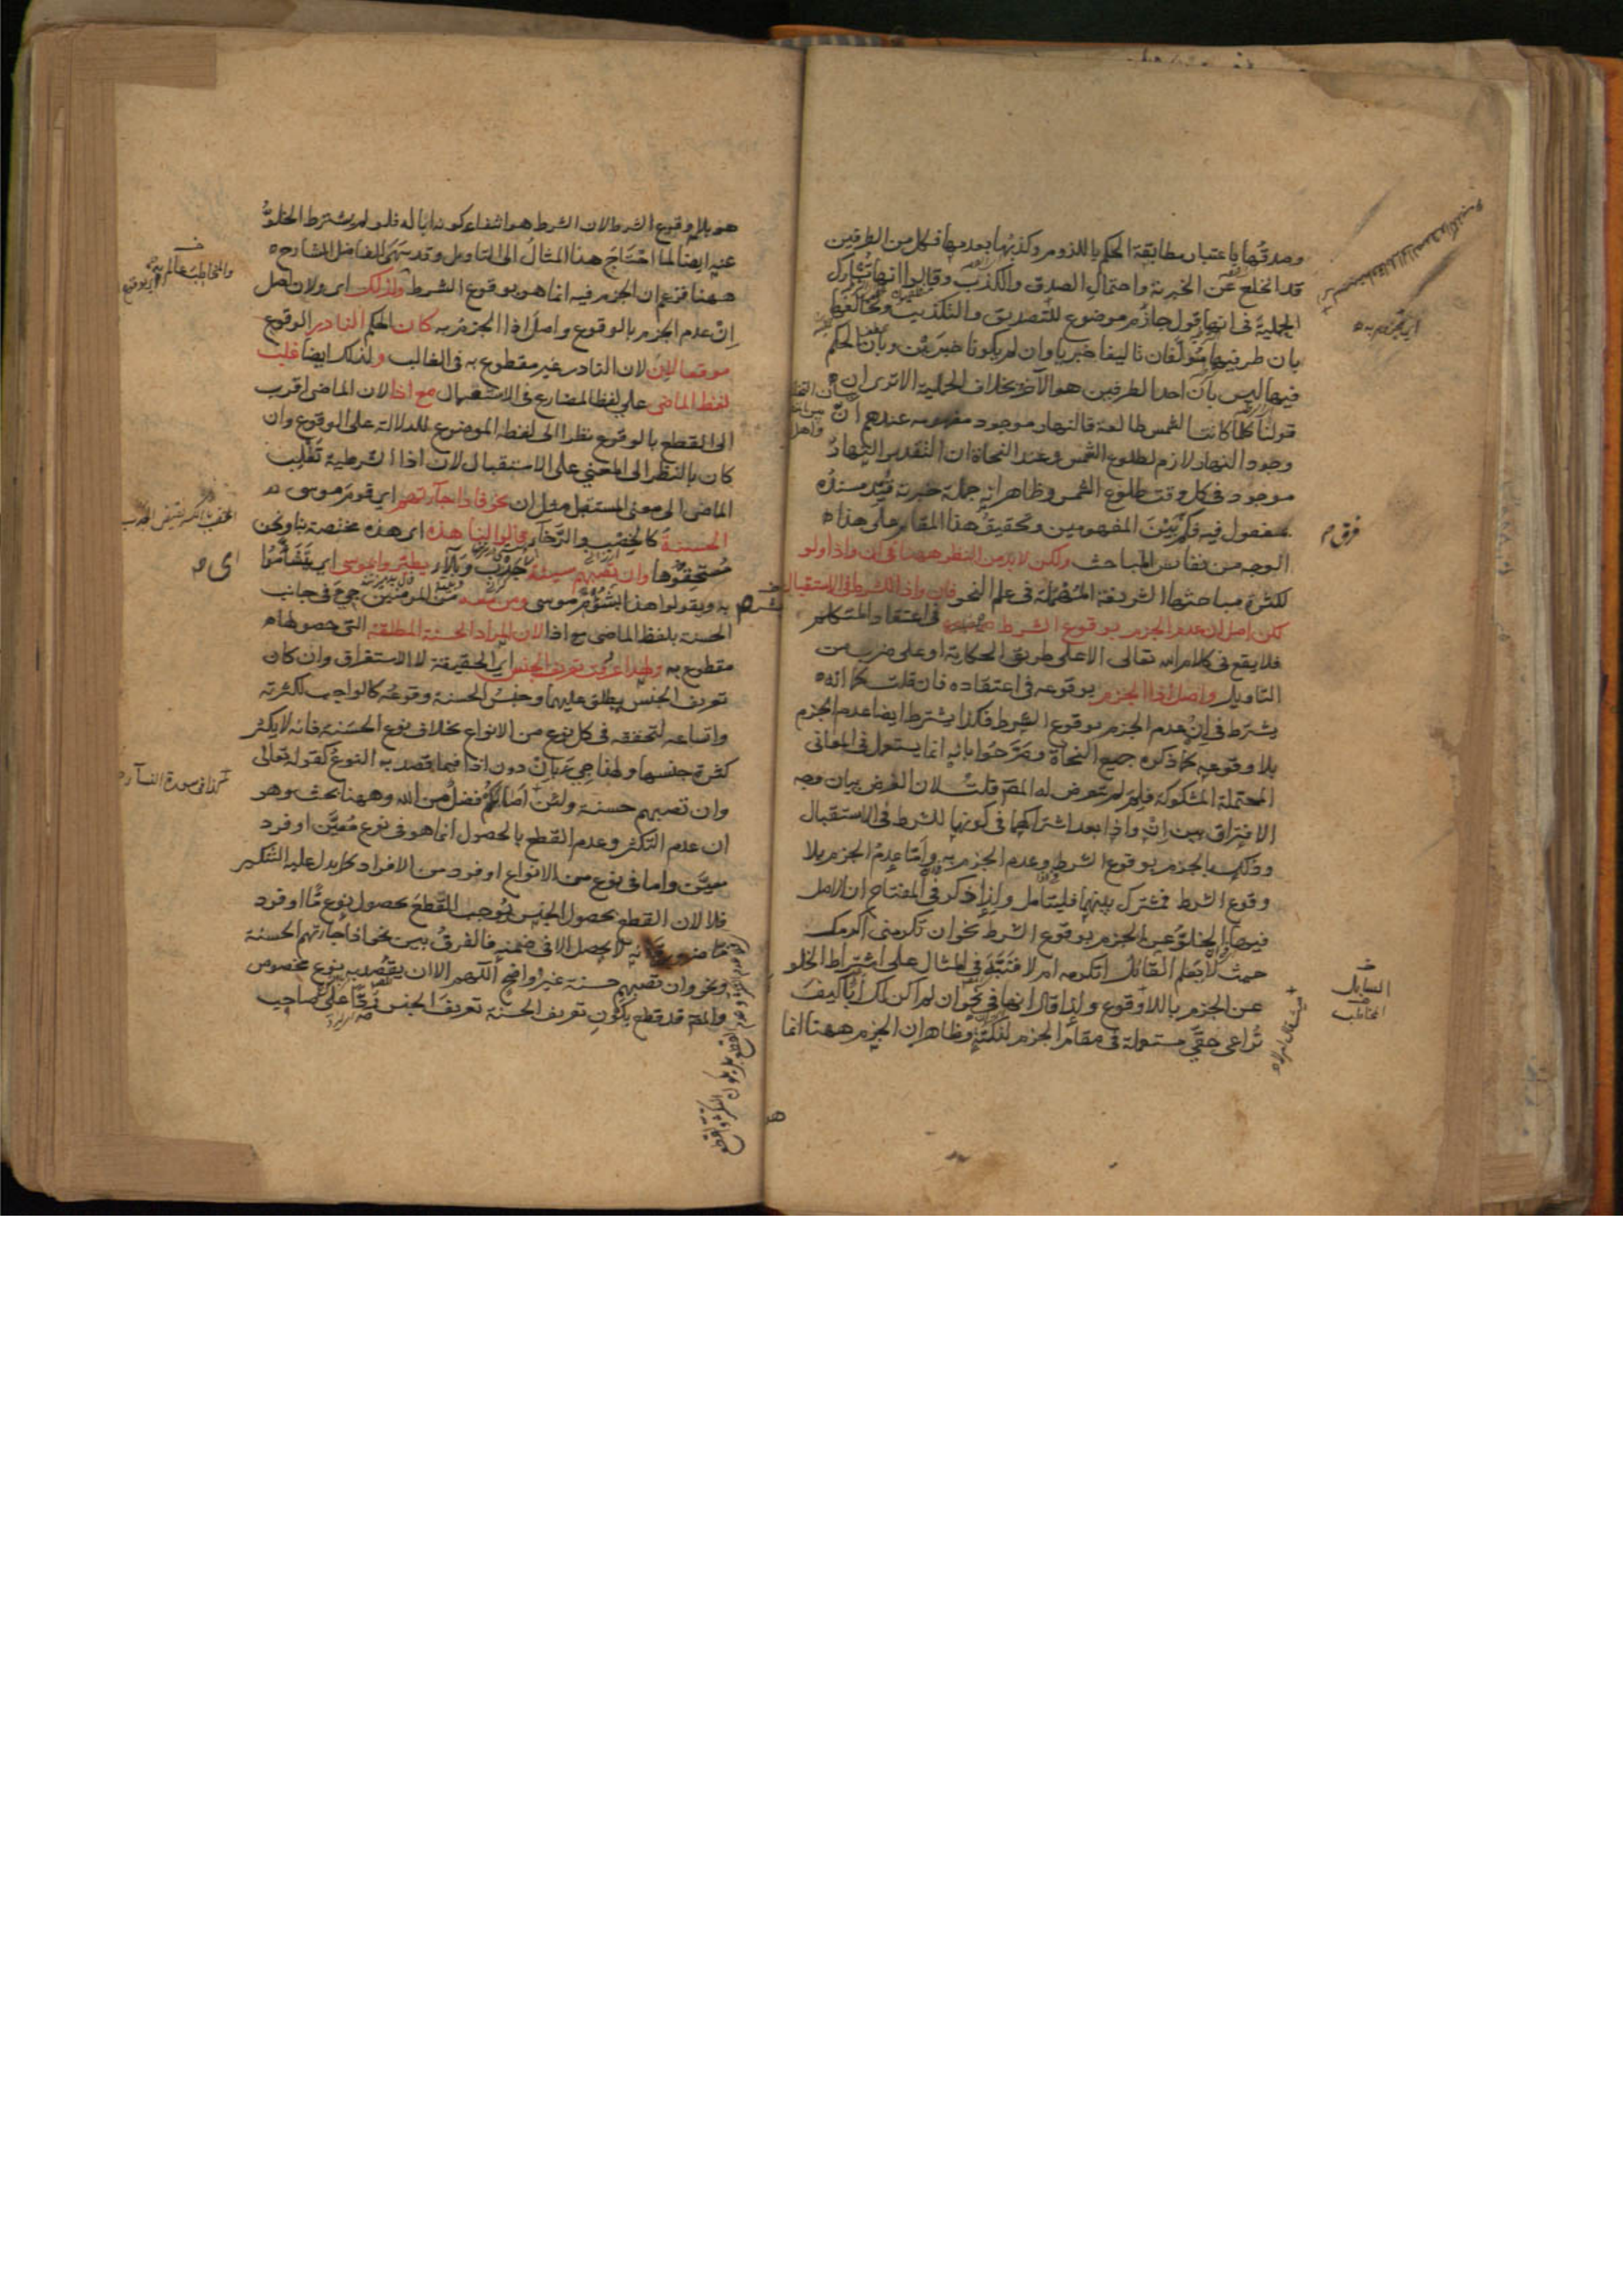 وصدقها باعتبار مطابقة الحكم باللزوم وكذبها بعدمها فكل من الطرفين
قد انخلع عن الخبرية واحتمال الصدق والكذب وقالوا انها تشارك
الحملية في انها قول جازم موضوع للتصديق والتكذيب وتخالفها
بان طرفيها مؤلفان تاليفا خبريا وان لم يكونا خبريين وبان الحكم
فيها ليس بان احد الطرفين هو الآخر بخلاف الحملية الا ترى ان
قولنا كلما كانت الشمس طالعة فالنهار موجود مفهومه عندهم ان
وجود النهار لازم لطلوع الشمس وعند النحاة ان التقدير النهار
موجود في كل وقت طلوع الشمس وظاهر انه جملة خبرية قيد مسنده
بمفعول فيه فكم بين المفهومين وتحقيق هذا المقام على هذا
الوجه من نفائس المباحث ولكن لا بد من النظر ههنا في ان واذا ولو
لكثرة مباحثها الشريفة المهملة في علم النحو فان واذا للشرط في الاستقبال
لكن اصل ان عدم الجزم بوقوع الشرط في اعتقاد المتكلم
فلا يقع في كلام الله تعالى الا على طريق الحكاية او على ضرب من
التاويل واصل اذا الجزم بوقوعه في اعتقاده فان قلت كما انه
يشترط في ان عدم الجزم بوقوع الشرط فكذا يشترط ايضا عدم الجزم
بلا وقوعه كما ذكره جميع النحاة وصرحوا بانه انما يستعمل في المعاني
المحتملة المشكوكة فلم لم يتعرض له المص قلت لان الغرض بيان وجه
الافتراق بين ان واذا بعد اشتراكهما في كونهما للشرط في الاستقبال
وذلك بالجزم بوقوع الشرط وعدم الجزم به واما عدم الجزم بلا
وقوع الشرط فمشترك بينهما فليتامل ولذا ذكر في المفتاح ان الاصل
فيها الخلو عن الجزم بوقوع الشرط نحو ان تكرمني اكرمك
حيث لا يعلم القائل اتكرمه ام لا فنبه في المثال على اشتراط الخلو
عن الجزم باللاوقوع ولذا قال انها في نحو ان لم اكن لك ابا كيف
تراعي حقي مستعملة في مقام الجزم لنكتة وظاهر ان الجزم ههنا انما
فرق
السايل
المخاطب
هو بلا وقوع الشرط لان الشرط هو انتفاء كونه ابا له فلو لم يشترط الخلو
عنه ايضا لما احتاج هذا المثال الى التاويل وقد سهى الفاضل الشارح
ههنا فزعم ان الجزم فيه انما هو بوقوع الشرط ولذلك اى ولان اصل
ان عدم الجزم بالوقوع واصل اذا الجزم به كان الحكم النادر الوقوع
موقعا لان لان النادر غير مقطوع به في الغالب ولذلك ايضا غلب
لفظ الماضي على لفظ المضارع في الاستعمال مع اذا لان الماضي اقرب
الى القطع بالوقوع نظرا الى لفظه الموضوع للدلالة على الوقوع وان
كان بالنظر الى المعنى على الاستقبال لان اذا الشرطية تقلب
الماضي الى معنى المستقبل مثل ان نحو فاذا جاءتهم اى قوم موسى
الحسنة كالخصب والرخاء قالوا لنا هذه اى هذه مختصة بنا ونحن
مستحقوها وان تصبهم سيئة جدب وبلاء يطيروا بموسى اى يتشاءموا
به ويقولوا هذا بشؤم موسى ومن معه من المؤمنين جئ في جانب
الحسنة بلفظ الماضي مع اذا لان المراد الحسنة المطلقة التي حصولها
مقطوع به ولهذا عرفت تعريف الجنس اى الحقيقة لا الاستغراق وان كان
تعريف الجنس يطلق عليهما وجنس الحسنة وقوعه كالواجب لكثرته
واتساعه لتحققه في كل نوع من الانواع بخلاف نوع الحسنة فانه لا يكثر
كثرة جنسها ولهذا جئ بان دون اذا فيما قصد به النوع كقوله تعالى
وان تصبهم حسنة ولئن اصابكم فضل من الله وههنا بحث وهو
ان عدم التكثر وعدم القطع بالحصول انما هو في نوع معين او فرد
معين واما في نوع من الانواع او فرد من الافراد كما يدل عليه التنكير
فلا لان القطع بحصول الجنس يوجب القطع بحصول نوع ما او فرد
ما ضرورة انه لا يحصل الا في ضمنه فالفرق بين نحو اذا جاءتهم الحسنة
ونحو وان تصبهم حسنة غير واضح اللهم الا ان يقصد به نوع مخصوص
والمص قد قطع بكون تعريف الحسنة تعريف الجنس ردا على صاحب
كذا في سورة النساء
اى